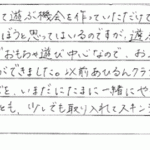 て遊ぶ機会を作っていただけて
ぼうと思ってはいるのですが、遊ぶ
おもちゃ遊び中心なので、お
ができました。以前あひるんクラ
を、いまだにたまに一緒にや
とも、少しでも取り入れてスキンシ